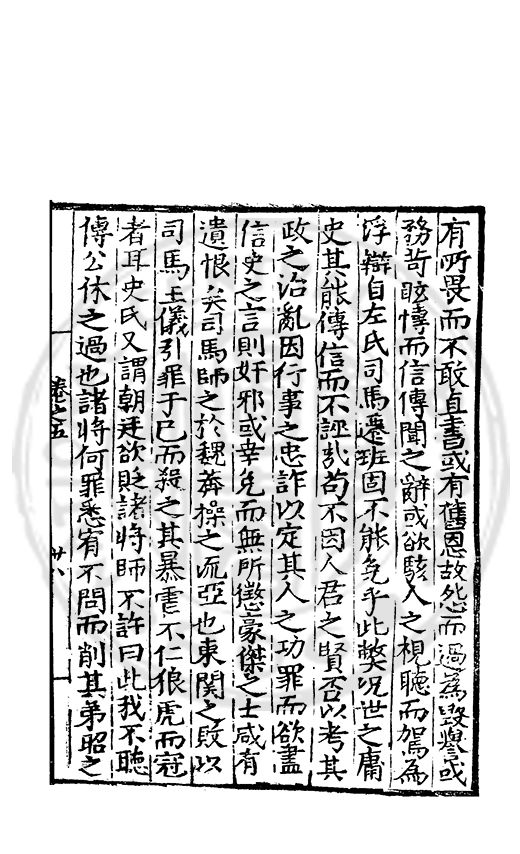 有所畏而不敢直書或有舊恩故怨而過爲毀譽或
務苛眩慱而信傳聞之辭或欲駭人之視聽而駕爲
浮辯自左氏司馬遷班固不能免乎此獘况世之庸
史其能傳信而不誣㢤苟不因人君之賢否以考其
政之治亂因行事之忠詐以定其人之功罪而欲盡
信史之言則奸邪或幸免而無所懲豪傑之士咸有
遺恨矣司馬師之於魏莽操之流亞也東關之敗以
司馬王儀引罪于巳而殺之其暴䖍不仁狼虎而冠
者耳史氏又謂朝廷欲貶諸將師不許曰此我不聽
傳公休之過也諸將何罪悉宥不問而削其弟昭之
卷之五
廿八